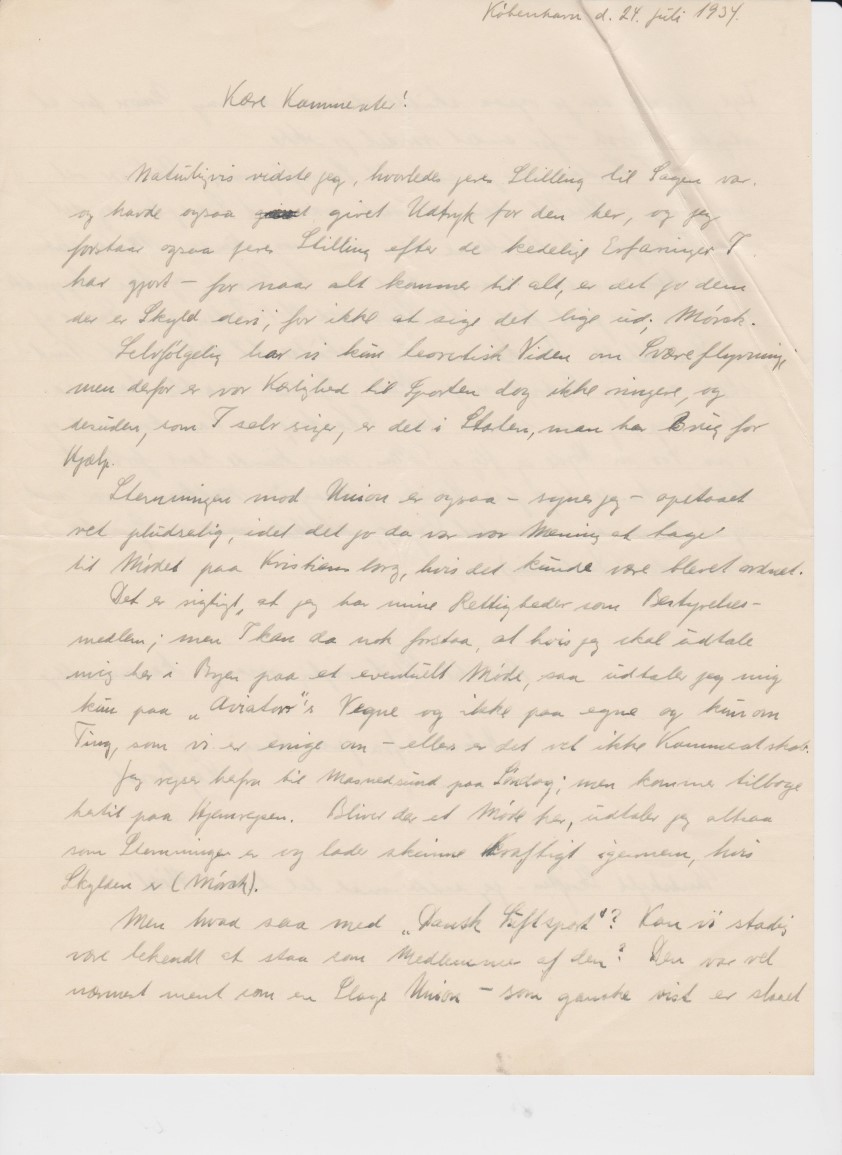 København d. 24. Juli 1934.
Kære Kammerater!
Naturligvis vidste jeg, hvorledes jeres Stilling til Sagen var,
og havde ogsaa givet Udtryk for den her, og jeg
forstaar ogsaa jeres Stilling efter de kedelige Erfaringer I
har gjort – for naar alt kommer til alt, er det jo dem
der er Skyld deri; for ikke at sige det lige ud; Mörch.
Selvfølgelig har vi kun teoretisk Viden om Svæveflyvning,
men derfor er vor Kærlighed til Sporten dog ikke ringere, og
desuden, som I selv siger, er det i Starten, man har Brug for
Hjælp.
Stemningen mod Union er ogsaa – synes jeg – opstaaet
vel pludselig, idet det jo da var vor Mening at tage
til Mödet paa Kristiansborg, hvis det kunde være blevet ordnet.
Det er rigtigt, at jeg har mine Rettigheder som Bestyrelses-
medlem; men I kan da nok forstaa, at hvis jeg skal udtale
mig her i Byen paa et eventuelt Möde, saa udtaler jeg mig
kun paa „Aviator"s Vegne og ikke paa egne og kun om
Ting, som vi er enige om – ellers er det vel ikke Kammeratskab.
Jeg rejser herfra til Masnedsund paa Söndag; men kommer tilbage
hertil paa Hjemrejsen. Bliver der et Möde her, udtaler jeg altsaa
som Stemningen er og lader skinne kraftigt igennem, hvis
Skylden er (Mörch).
Men hvad saa med „Dansk Luftsport"? Kan vi stadig
være bekendt at staa som Medlemmer af den? Den var vel
nærmest ment som en Slags Union – som ganske vist er slaaet